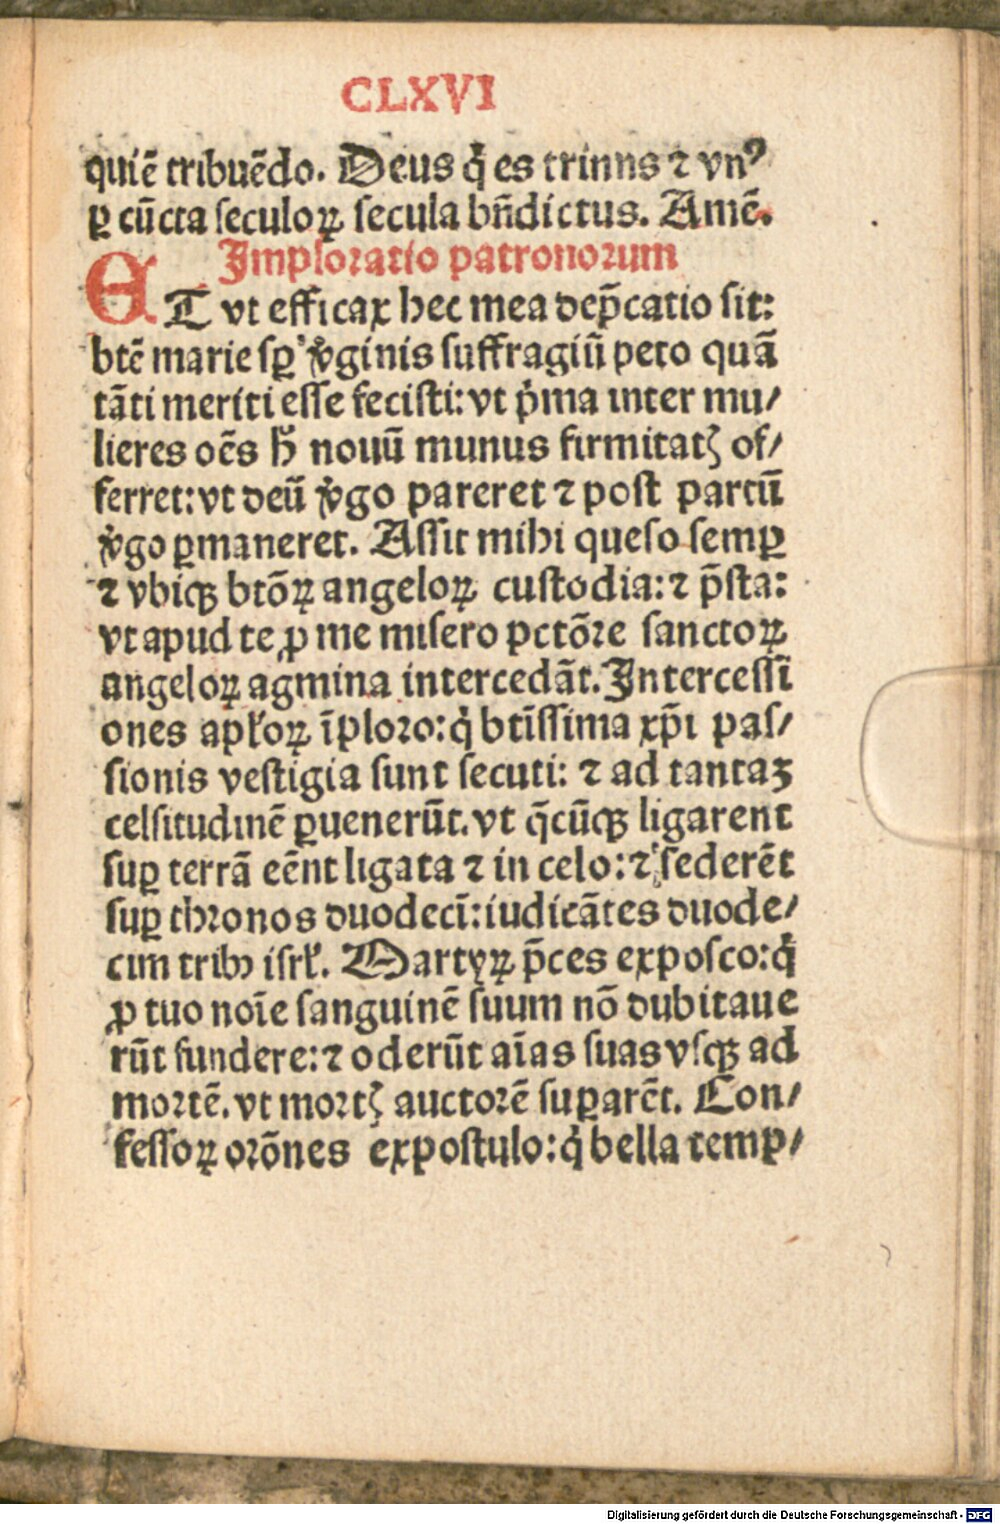 CLXVI
quiē tribuēdo. Deus q̇ es trinns ⁊ vnꝰ
ꝑ cūcta ſeculoꝝ ſecula bn̄dictus. Amē.
Imploratio patronorum
ET vt efficax hec mea dep̄catio ſit:
btē marie ſꝑ v̇ginis ſuffragiū peto quā
tāti meriti eſſe feciſti: vt ṗma inter mu/
lieres oēs h̄ nouū munus firmitatꝭ of/
ferret: vt deū v̇go pareret ⁊ poſt partū
v̇go ꝑmaneret. Aſſit mihi queſo ſemꝑ
⁊ vbiqꝫ btōꝝ angeloꝝ cuſtodia: ⁊ p̄ſta:
vt apud te ꝓ me miſero pctōꝛe ſanctoꝝ
angeloꝝ agmina intercedāt. Interceſſi
ones apl̄oꝝ īploꝛo: q̇ btīſſima xp̄i paſ/
ſionis veſtigia ſunt ſecuti: ⁊ ad tantaꝫ
celſitudinē ꝑuenerūt. vt q̄cūqꝫ ligarent
ſuꝑ terrā eēnt ligata ⁊ in celo: ⁊ ſederēt
ſuꝑ thꝛonos duodecī: iudicātes duode/
cim tribꝰ iſrl̄. Martyꝝ p̄ces expoſco: q̇
ꝓ tuo noīe ſanguinē ſuum nō dubitaue
rūt fundere: ⁊ oderūt aīas ſuas vſqꝫ ad
moꝛtē. vt moꝛtꝭ auctoꝛē ſuꝑarēt. Con/
feſſoꝝ oꝛōnes expoſtulo: q̇ bella temꝑ/
Digitalisierung gefördert durch die Deutsche Forschungsgemeinschaft - DFG